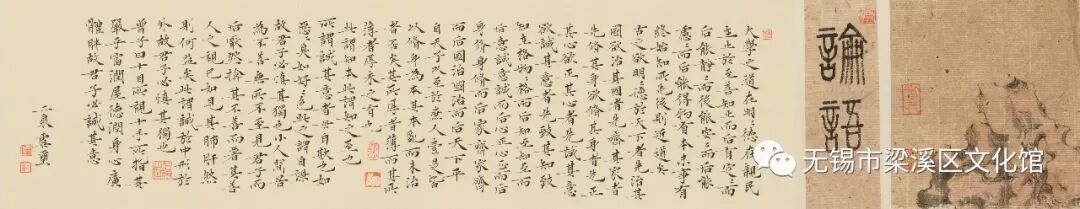 論語
大學之道在明〻德在親民
在止於至善知止而后有定〻而
后能靜〻而后能安〻而后能
慮〻而后能得物有本末事有
終始知所先後則近道矣
古之欲明明德於天下者先治其
國欲治其國者先齊其家欲齊其家者
先脩其身欲脩其身者先正
其心欲正其心者先誠其意
欲誠其意者先致其知致
知在格物物格而后知至知至而
后意誠意誠而后心正心正而后
身脩身脩而后家齊家齊
而后國治國治而后天下平
自天子以至於庶人壹是皆
以脩身為本其本亂而末治
者否矣其所厚者薄而其所
薄者厚未之有也
此謂知本此謂知之至也
所謂誠其意者毋自欺也如
惡〻臭如好〻色此之謂自謙
故君子必慎其獨也小人閒居
為不善無所不至見君子而
后厭然揜其不善而著其善
人之視己如見其肺肝然
則何益矣此謂誠於中形於
外故君子必慎其獨也
曾子曰十目所視十手所指其
嚴乎富潤屋德潤身心廣
體胖故君子必誠其意
二泉雲
无锡市梁溪区文化馆